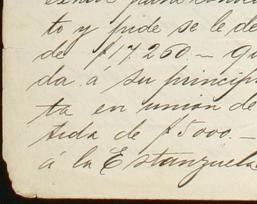 to y pide se le de
de $17.260 — Qu
da á su princip
ta en union de
tida de $5000. —
á la Estanzuela